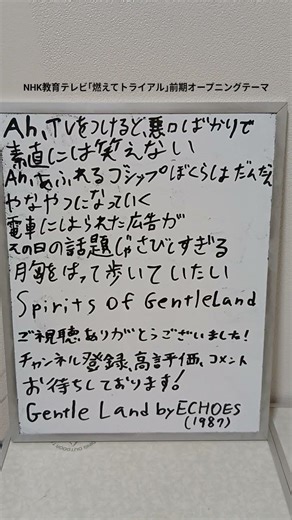 NHK教育テレビ「燃えてトライアル」前期オープニングテーマ
Ah,TVをつけると、悪口ばかりで
素直には笑えない
Ah,あふれるゴシップぼくらはだんだん
やなやつになっていく
電車にはられた広告が
その日の話題じゃさびしすぎる
胸をはって歩いていたい
Spirits of Gentleland
ご視聴ありがとうございました!
チャンネル登録、高評価、コメント
お待ちしております!
Gentle Land by ECHOES
(1987)